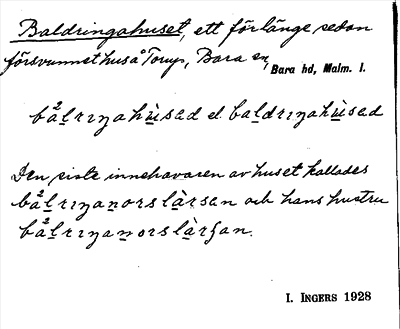 Baldringahuset, ett för länge sedan
försvunnet hus å Torup, Bara sn,
Bara hd, Malm. l.
bålrɪŋahùsad el. baldrɪŋahùsad
Den siste innehavaren av huset kallades
bålrɪŋa norslàrsan och hans hustru
bålrɪŋa norslàrʃan.
I. INGERS 1928